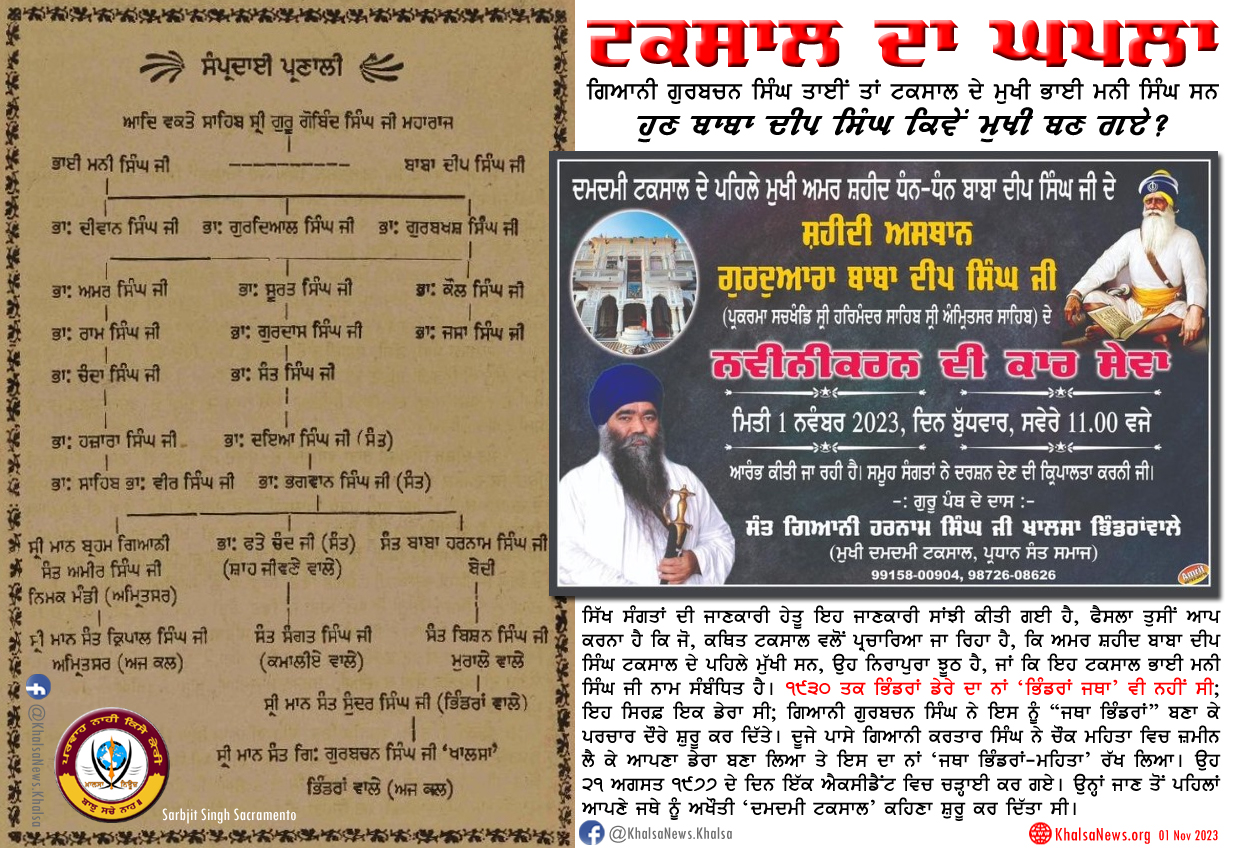 ਸੰਪ੍ਰਦਾਈ ਪ੍ਰਣਾਲੀ
ਆਦਿ ਵਕਤੇ ਸਾਹਿਬ ਸ੍ਰੀ ਗੁਰੂ ਗੋਬਿੰਦ ਸਿੰਘ ਜੀ ਮਹਾਰਾਜ
ਭਾਈ ਮਨੀ ਸਿੰਘ ਜੀ ---------- ਬਾਬਾ ਦੀਪ ਸਿੰਘ ਜੀ
ਭਾ: ਦੀਵਾਨ ਸਿੰਘ ਜੀ ਭਾ: ਗੁਰਦਿਆਲ ਸਿੰਘ ਜੀ ਭਾ: ਗੁਰਬਖਸ਼ ਸਿੰਘ ਜੀ
ਭਾ: ਅਮਰ ਸਿੰਘ ਜੀ ਭਾ: ਸੂਰਤ ਸਿੰਘ ਜੀ ਭਾ: ਕੌਲ ਸਿੰਘ ਜੀ
ਭਾ: ਰਾਮ ਸਿੰਘ ਜੀ ਭਾ: ਗੁਰਦਾਸ ਸਿੰਘ ਜੀ ਭਾ: ਜਸਾ ਸਿੰਘ ਜੀ
ਭਾ: ਚੰਦਾ ਸਿੰਘ ਜੀ ਭਾ: ਸੰਤ ਸਿੰਘ ਜੀ
ਭਾ: ਹਜ਼ਾਰਾ ਸਿੰਘ ਜੀ ਭਾ: ਦਇਆ ਸਿੰਘ ਜੀ (ਸੰਤ)
ਭਾ: ਸਾਹਿਬ ਭਾ: ਵੀਰ ਸਿੰਘ ਜੀ ਭਾ: ਭਗਵਾਨ ਸਿੰਘ ਜੀ (ਸੰਤ)
ਸ੍ਰੀ ਮਾਨ ਬ੍ਰਹਮ ਗਿਆਨੀ ਭਾ: ਫਤੇ ਚੰਦ ਜੀ (ਸੰਤ) ਸੰਤ ਬਾਬਾ ਹਰਨਾਮ ਸਿੰਘ ਜੀ
ਸੰਤ ਅਮੀਰ ਸਿੰਘ ਜੀ (ਸ਼ਾਹ ਜੀਵਣੇ ਵਾਲੇ) ਬੇਦੀ
ਨਿਮਕ ਮੰਡੀ (ਅਮ੍ਰਿਤਸਰ)
ਸ੍ਰੀ ਮਾਨ ਸੰਤ ਕ੍ਰਿਪਾਲ ਸਿੰਘ ਜੀ ਸੰਤ ਸੰਗਤ ਸਿੰਘ ਜੀ ਸੰਤ ਬਿਸ਼ਨ ਸਿੰਘ ਜੀ
ਅਮ੍ਰਿਤਸਰ (ਅਜ ਕਲ) (ਕਮਾਲੀਏ ਵਾਲੇ) ਮੁਰਾਲੇ ਵਾਲੇ
ਸ੍ਰੀ ਮਾਨ ਸੰਤ ਸੁੰਦਰ ਸਿੰਘ ਜੀ (ਭਿੰਡਰਾਂ ਵਾਲੇ)
ਸ੍ਰੀ ਮਾਨ ਸੰਤ ਗਿ: ਗੁਰਬਚਨ ਸਿੰਘ ਜੀ ‘ਖਾਲਸਾ’
ਭਿੰਡਰਾਂ ਵਾਲੇ (ਅਜ ਕਲ)
@KhalsaNews.Khalsa
ਪਰਵਾਹ ਨਾਹੀ ਕਿਸੈ ਕੇਰੀ
ਖਾਲਸਾ ਨਿਊਜ਼
ਬਾਝੁ ਸਚੇ ਨਾਹ॥
Sarbjit Singh Sacramento
ਟਕਸਾਲ ਦਾ ਘਪਲਾ
ਗਿਆਨੀ ਗੁਰਬਚਨ ਸਿੰਘ ਤਾਈਂ ਤਾਂ ਟਕਸਾਲ ਦੇ ਮੁਖੀ ਭਾਈ ਮਨੀ ਸਿੰਘ ਸਨ
ਹੁਣ ਬਾਬਾ ਦੀਪ ਸਿੰਘ ਕਿਵੇਂ ਮੁਖੀ ਬਣ ਗਏ?
ਦਮਦਮੀ ਟਕਸਾਲ ਦੇ ਪਹਿਲੇ ਮੁਖੀ ਅਮਰ ਸ਼ਹੀਦ ਧੰਨ-ਧੰਨ ਬਾਬਾ ਦੀਪ ਸਿੰਘ ਜੀ ਦੇ
ਸ਼ਹੀਦੀ ਅਸਥਾਨ
ਗੁਰਦੁਆਰਾ ਬਾਬਾ ਦੀਪ ਸਿੰਘ ਜੀ
(ਪ੍ਰਕਰਮਾ ਸਚਖੰਡਿ ਸ੍ਰੀ ਹਰਿਮੰਦਰ ਸਾਹਿਬ ਸ੍ਰੀ ਅੰਮ੍ਰਿਤਸਰ ਸਾਹਿਬ) ਦੇ
ਨਵੀਨੀਕਰਨ ਦੀ ਕਾਰ ਸੇਵਾ
ਮਿਤੀ 1 ਨਵੰਬਰ 2023, ਦਿਨ ਬੁੱਧਵਾਰ, ਸਵੇਰੇ 11.00 ਵਜੇ
ਆਰੰਭ ਕੀਤੀ ਜਾ ਰਹੀ ਹੈ। ਸਮੂਹ ਸੰਗਤਾਂ ਨੇ ਦਰਸ਼ਨ ਦੇਣ ਦੀ ਕ੍ਰਿਪਾਲਤਾ ਕਰਨੀ ਜੀ।
-: ਗੁਰੂ ਪੰਥ ਦੇ ਦਾਸ :-
ਸੰਤ ਗਿਆਨੀ ਹਰਨਾਮ ਸਿੰਘ ਜੀ ਖਾਲਸਾ ਭਿੰਡਰਾਂਵਾਲੇ
(ਮੁਖੀ ਦਮਦਮੀ ਟਕਸਾਲ, ਪ੍ਰਧਾਨ ਸੰਤ ਸਮਾਜ)
99158-00904, 98726-08626
Amrit
ਸਿੱਖ ਸੰਗਤਾਂ ਦੀ ਜਾਣਕਾਰੀ ਹੇਤੂ ਇਹ ਜਾਣਕਾਰੀ ਸਾਂਝੀ ਕੀਤੀ ਗਈ ਹੈ, ਫੈਸਲਾ ਤੁਸੀਂ ਆਪ
ਕਰਨਾ ਹੈ ਕਿ ਜੋ, ਕਥਿਤ ਟਕਸਾਲ ਵਲੋਂ ਪ੍ਰਚਾਰਿਆ ਜਾ ਰਿਹਾ ਹੈ, ਕਿ ਅਮਰ ਸ਼ਹੀਦ ਬਾਬਾ ਦੀਪ
ਸਿੰਘ ਟਕਸਾਲ ਦੇ ਪਹਿਲੇ ਮੁੱਖੀ ਸਨ, ਉਹ ਨਿਰਾਪੁਰਾ ਝੂਠ ਹੈ, ਜਾਂ ਕਿ ਇਹ ਟਕਸਾਲ ਭਾਈ ਮਨੀ
ਸਿੰਘ ਜੀ ਨਾਮ ਸੰਬੰਧਿਤ ਹੈ। ੧੯੩੦ ਤਕ ਭਿੰਡਰਾਂ ਡੇਰੇ ਦਾ ਨਾਂ ‘ਭਿੰਡਰਾਂ ਜਥਾ’ ਵੀ ਨਹੀਂ ਸੀ;
ਇਹ ਸਿਰਫ਼ ਇਕ ਡੇਰਾ ਸੀ; ਗਿਆਨੀ ਗੁਰਬਚਨ ਸਿੰਘ ਨੇ ਇਸ ਨੂੰ “ਜਥਾ ਭਿੰਡਰਾਂ” ਬਣਾ ਕੇ
ਪਰਚਾਰ ਦੌਰੇ ਸ਼ੁਰੂ ਕਰ ਦਿੱਤੇ। ਦੂਜੇ ਪਾਸੇ ਗਿਆਨੀ ਕਰਤਾਰ ਸਿੰਘ ਨੇ ਚੌਕ ਮਹਿਤਾ ਵਿਚ ਜ਼ਮੀਨ
ਲੈ ਕੇ ਆਪਣਾ ਡੇਰਾ ਬਣਾ ਲਿਆ ਤੇ ਇਸ ਦਾ ਨਾਂ ‘ਜਥਾ ਭਿੰਡਰਾਂ-ਮਹਿਤਾ’ ਰੱਖ ਲਿਆ। ਉਹ
੨੧ ਅਗਸਤ ੧੯੭੭ ਦੇ ਦਿਨ ਇੱਕ ਐਕਸੀਡੈਂਟ ਵਿਚ ਚੜ੍ਹਾਈ ਕਰ ਗਏ। ਉਨ੍ਹਾਂ ਜਾਣ ਤੋਂ ਪਹਿਲਾਂ
ਆਪਣੇ ਜਥੇ ਨੂੰ ਅਖੌਤੀ ‘ਦਮਦਮੀ ਟਕਸਾਲ’ ਕਹਿਣਾ ਸ਼ੁਰੂ ਕਰ ਦਿੱਤਾ ਸੀ।
@KhalsaNews.Khalsa KhalsaNews.org 01 Nov 2023